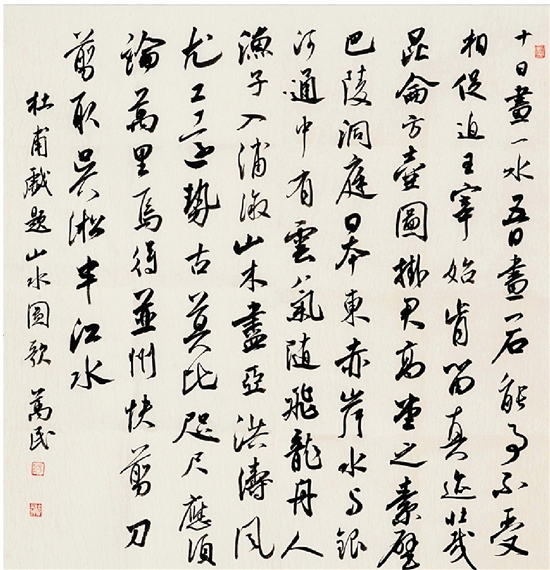 十日畫一水五日畫一石能事不受
相促迫王宰始肯留真迹壯哉
昆侖方壺圖掛君高堂之素壁
巴陵洞庭日本東赤岸水与銀
河通中有雲氣随飛龍舟人
漁子入浦溆山木盡亞洪濤風
尤工遠勢古莫比咫尺應須
論萬里焉得並州快剪刀
剪取吳淞半江水
杜甫戲題山水圖歌 萬民